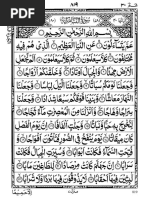 بِسْمِ اللّٰهِ الرَّحْمٰنِ الرَّحِيْمِ
عَمَّ يَتَسَآءَلُوْنَ عَنِ النَّبَاِ الْعَظِيْمِ الَّذِيْ هُمْ فِيْهِ
مُخْتَلِفُوْنَ كَلَّا سَيَعْلَمُوْنَ ثُمَّ كَلَّا سَيَعْلَمُوْنَ اَلَمْ
نَجْعَلِ الْاَرْضَ مِهٰدًا وَّالْجِبَالَ اَوْتَادًا وَّخَلَقْنٰكُمْ اَزْوَاجًا
وَّجَعَلْنَا نَوْمَكُمْ سُبَاتًا وَّجَعَلْنَا الَّيْلَ لِبَاسًا
وَّجَعَلْنَا النَّهَارَ مَعَاشًا وَّبَنَيْنَا فَوْقَكُمْ سَبْعًا شِدَادًا
وَّجَعَلْنَا سِرَاجًا وَّهَّاجًا وَّاَنْزَلْنَا مِنَ الْمُعْصِرٰتِ مَآءً ثَجَّاجًا
لِّنُخْرِجَ بِهٖ حَبًّا وَّنَبَاتًا وَّجَنّٰتٍ اَلْفَافًا اِنَّ يَوْمَ الْفَصْلِ
كَانَ مِيْقَاتًا يَّوْمَ يُنْفَخُ فِي الصُّوْرِ فَتَاْتُوْنَ اَفْوَاجًا
وَّفُتِحَتِ السَّمَآءُ فَكَانَتْ اَبْوَابًا وَّسُيِّرَتِ الْجِبَالُ
فَكَانَتْ سَرَابًا اِنَّ جَهَنَّمَ كَانَتْ مِرْصَادًا لِّلطَّاغِيْنَ مَاٰبًا